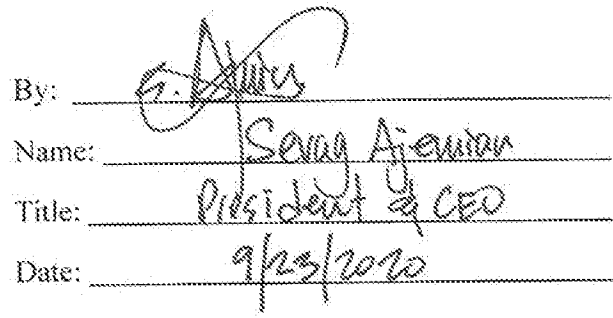 By:
Name: Sevag Ajemian
Title: President & CEO
Date: 9/23/2020